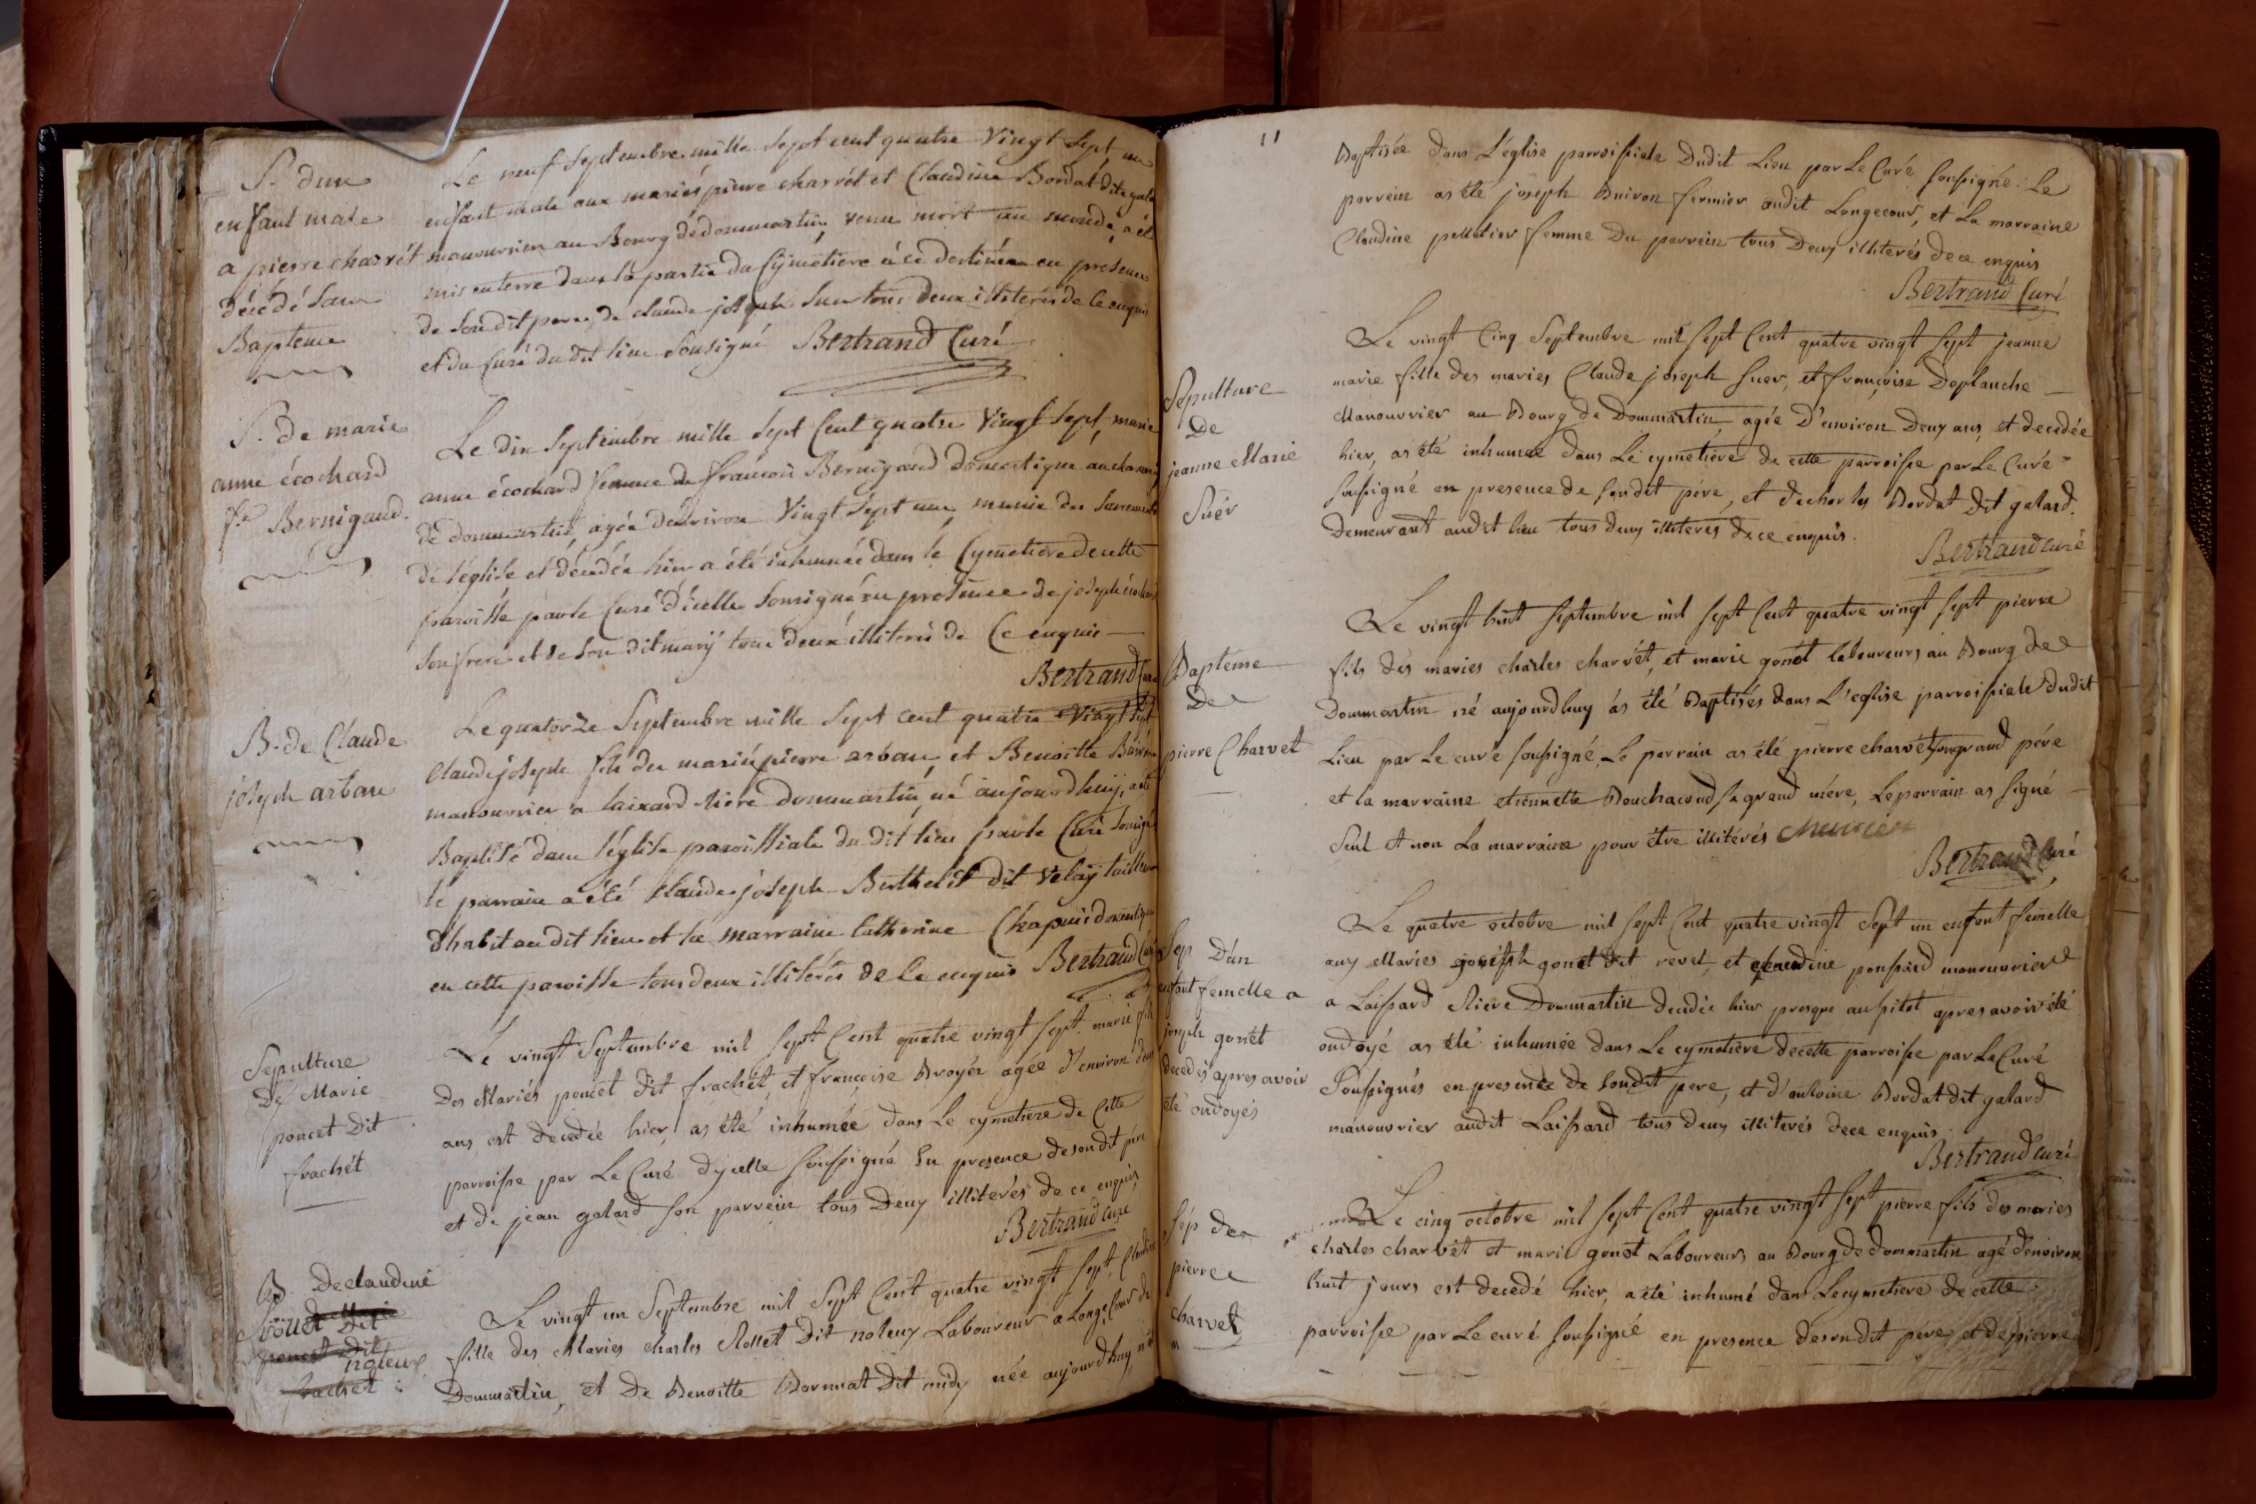 S. dun
enfant male
a pierre charvét
décédé sans
Baptême
Le neuf Septembre mille Sept cent quatre Vingt Sept un
enfant male aux mariés pierre charvét et Claudine Bordat dit galard
manouvrier au Bourg de dommartin, venu mort au monde, a été
mis en terre dans la partie du Cymetiere à ce destinée en presence
de son dit pere, de claude joseph Suer tous deux illiterés de ce enquis
et du Curé du dit lieu Sousigné Bertrand Curé
S. de marie
anne écochard
fe Bernigaud.
Le dix Septembre mille Sept Cent quatre Vingt Sept, marie
anne écochard femme de françois Bernigaud domestique au
de dommartin, agée denviron Vingt Sept ans, munie des Sacrements
de l'église et décédée hier a été inhumée dans le Cymetiere de cette
paroisse par le Curé d'icelle Sousigné en presence de joseph écochard
son frere et de son dit mary tous deux illiterés de Ce enquis
Bertrand Curé
B. de Claude
joseph arban
Le quatorze Septembre mille Sept cent quatre Vingt Sept
Claude joseph fils des mariés pierre arban, et Benoitte
manouvrier a laissard riere dommartin, né aujourdhuy, a été
Baptisé dans l'église paroissiale du dit lieu par le Curé Sousigné
le parrain a été Claude joseph Berthelet dit Velay tailleur
dhabit au dit lieu et la marraine Catherine Chapuis domestique
en cette paroisse tous deux illiterés de Ce enquis Bertrand Curé
Sepulture
De Marie
poncet Dit
frachét
Le vingt Septembre mil Sept Cent quatre vingt Sept. marie fille
Des Mariés poncet Dit frachét, et françoise Broyér agée d'environ deux
ans est decedée hier, as été inhumée dans Le cymetiere de Cette
parroisse par Le Curé dycelle soussigné En presence de son dit pere
et de jean galard son parrein tous Deux illiterés de ce enquis
Bertrand Curé
B. De claudine
Rollet Dit
poncet Dit
noleux
frachet
Le vingt un Septembre mil Sept Cent quatre vingt Sept, Claudine
fille des Maries charles Rollet Dit noleux Laboureur a Longe Cour de
Dommartin, et de Benoitte Bornnat Dit midy née aujourdhuy
11
Baptisée dans L'église parroissiale Dudit Lieu par Le Curé soussigné. Le
parrein as été joseph Buiron fermier audit Longecour, et La marraine
Claudine pelletier femme Du parrein tous Deux illiterés de ce enquis
Bertrand Curé
Sepulture
De
jeanne Marie
Suér
Le vingt Cinq Septembre mil sept Cent quatre vingt sept jeanne
marie fille des maries Claude joseph suer, et françoise Deplanche
Manouvrier au Bourg de Dommartin, agée D'environ Deux ans, et decedée
hier, as été inhumée dans Le cymetiére de cette parroisse par Le Curé
soussigné en presence de son dit pére, et de charles Bordat dit galard.
Demeurant audit lieu tous deux illiterés de ce enquis.
Bertrand Curé
Baptême
De
pierre Charvet
Le vingt huit septembre mil sept Cent quatre vingt sept pierre
fils des maries charles charvét, et marie gonet laboureurs au Bourg de
Dommartin né aujourdhuy as été Baptisés dans L'eglise parroissiale Dudit
Lieu par Le curé soussigné, Le parrain as été pierre charvét son grand pére
et la marraine etiennette Bouchacourd sa grand mére, Le parrain as signé
seul et non La marraine pour être illitérés charvét
Bertrand Curé
Sep D'un
enfant femelle a
joseph gonet
decedés apres avoir
été ondoyés
Le quatre octobre mil sept Cent quatre vingt Sept un enfant femelle
aux Maries joseph gonet Dit revet, et claudine ponsard manouvrier
a Laissard Riere Dommartin decedée hier presque aussitot apres avoir été
ondoyé as été inhumée dans Le cymetiere de cette parroisse par Le Curé
Soussignés en presence de Son dit pere, et d'antoine Bordat dit galard
manouvrier audit Laissard tous deux illiterés de ce enquis.
Bertrand Curé
Sép de
pierre
charvet
Le cinq octobre mil sept Cent quatre vingt Sept pierre fils des maries
charles charvét et marie gonet Laboureurs au Bourg de dommartin agé d'environ
huit jours est decedé hier, a été inhumé dans Le cymetiere de cette
parroisse par Le curé soussigné en presence de son dit pére, et de pierre